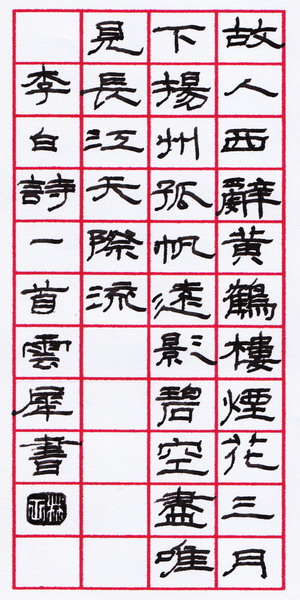 故人西辭黃鶴樓煙花三月
下揚州孤帆遠影碧空盡唯
見長江天際流
李白詩一首雲犀書